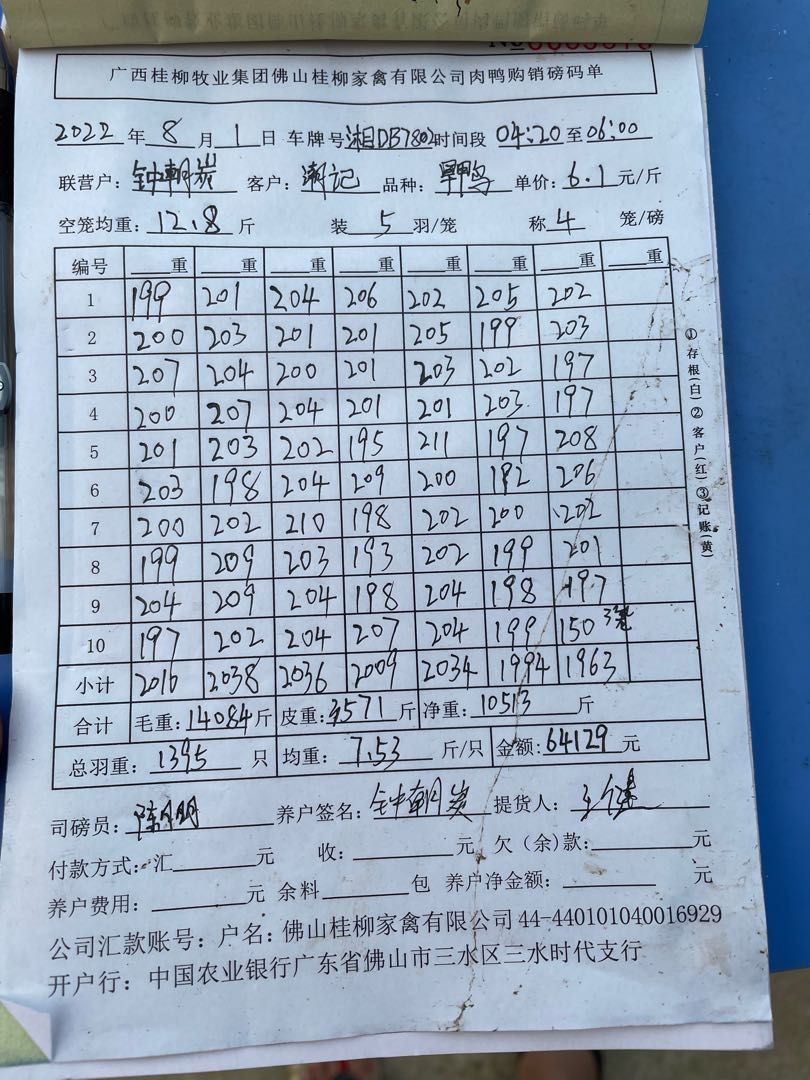 广西桂柳牧业集团佛山桂柳家禽有限公司肉鸭购销磅码单
2022年 8 月 1 日 车牌号 湘DB7802 时间段 04:20 至 06:00
联营户: 钟朝炭 客户: 潮记 品种: 旱鸭 单价: 6.1 元/斤
空笼均重: 12.8 斤 装 5 羽/笼 称 4 笼/磅
编号 重 重 重 重 重 重 重 重
1 199 201 204 206 202 205 202
2 200 203 201 201 205 199 203
3 207 204 200 201 203 202 197
4 200 207 204 201 201 203 197
5 201 203 202 195 211 197 208
6 203 198 204 209 200 192 206
7 200 202 210 198 202 200 202
8 199 209 203 193 202 199 201
9 204 209 204 198 204 198 197
10 197 202 204 207 204 199 150 3笼
小计 2010 2038 2036 2009 2034 1994 1963
合计 毛重: 14084 斤 皮重: 3571 斤 净重: 10513 斤
总羽重: 1395 只 均重: 7.53 斤/只 金额: 64129 元
司磅员: 养户签名: 钟朝炭 提货人:
付款方式: 汇 元 收: 元 欠(余)款: 元
养户费用: 元 余料 包 养户净金额: 元
公司汇款账号: 户名: 佛山桂柳家禽有限公司 44-440101040016929
开户行: 中国农业银行广东省佛山市三水区三水时代支行
①存根(白)②客户(红)③记账(黄)